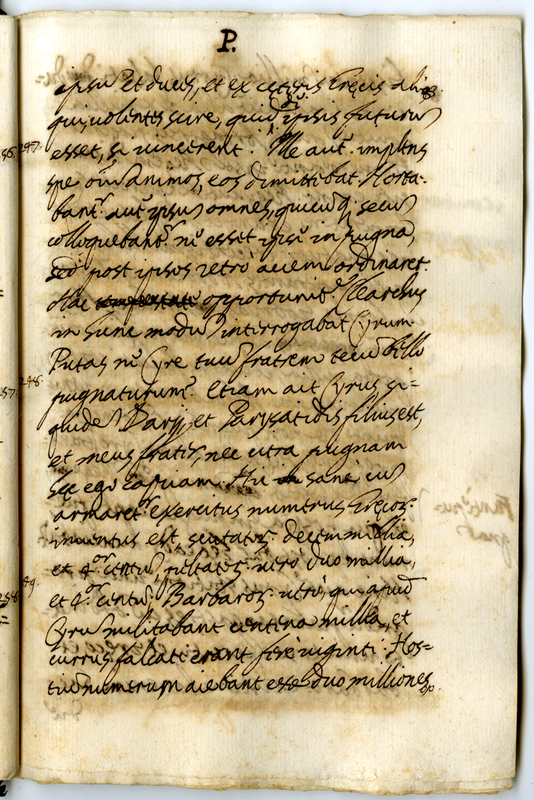 P.
ipsū et duces, et ex cęteris Gręcis ali
qui, volentes scire, quid ipsis futurū
esset, si vincerent. Ille aut. implens
spe oīū animos, eos dimittebat. Horta-
bantʳ aut. ipsū omnes, quicūq; secū
colloquebantʳ nū esset ipsū in pugna,
sed post ipsos retrò aciem ordinaret.
Hac opportunit. Clearchus
in hunc modū interrogabat Cyrum
Putas nū Cyre tuū fratrem tecū bello
pugnaturum? Etiam ait Cyrus si=
quidē Darij, et Parysatidis filius est,
et meus frater, nec citra pugnam
hęc ego capiam. Hic sanè cū
armaretʳ exercitus numerus Gręcoꝝ
inventus est, scutatoꝝ decem millia,
et 4.ᵒʳ centū, peltatoꝝ verò duo millia,
et 4.ᵒʳ centū; Barbaroꝝ verò, qui apud
Cyrū militabant centena millia, et
currus falcati erant ferè viginti. Hos=
tiū numerum aiebant esse duo milliones
247.
248.